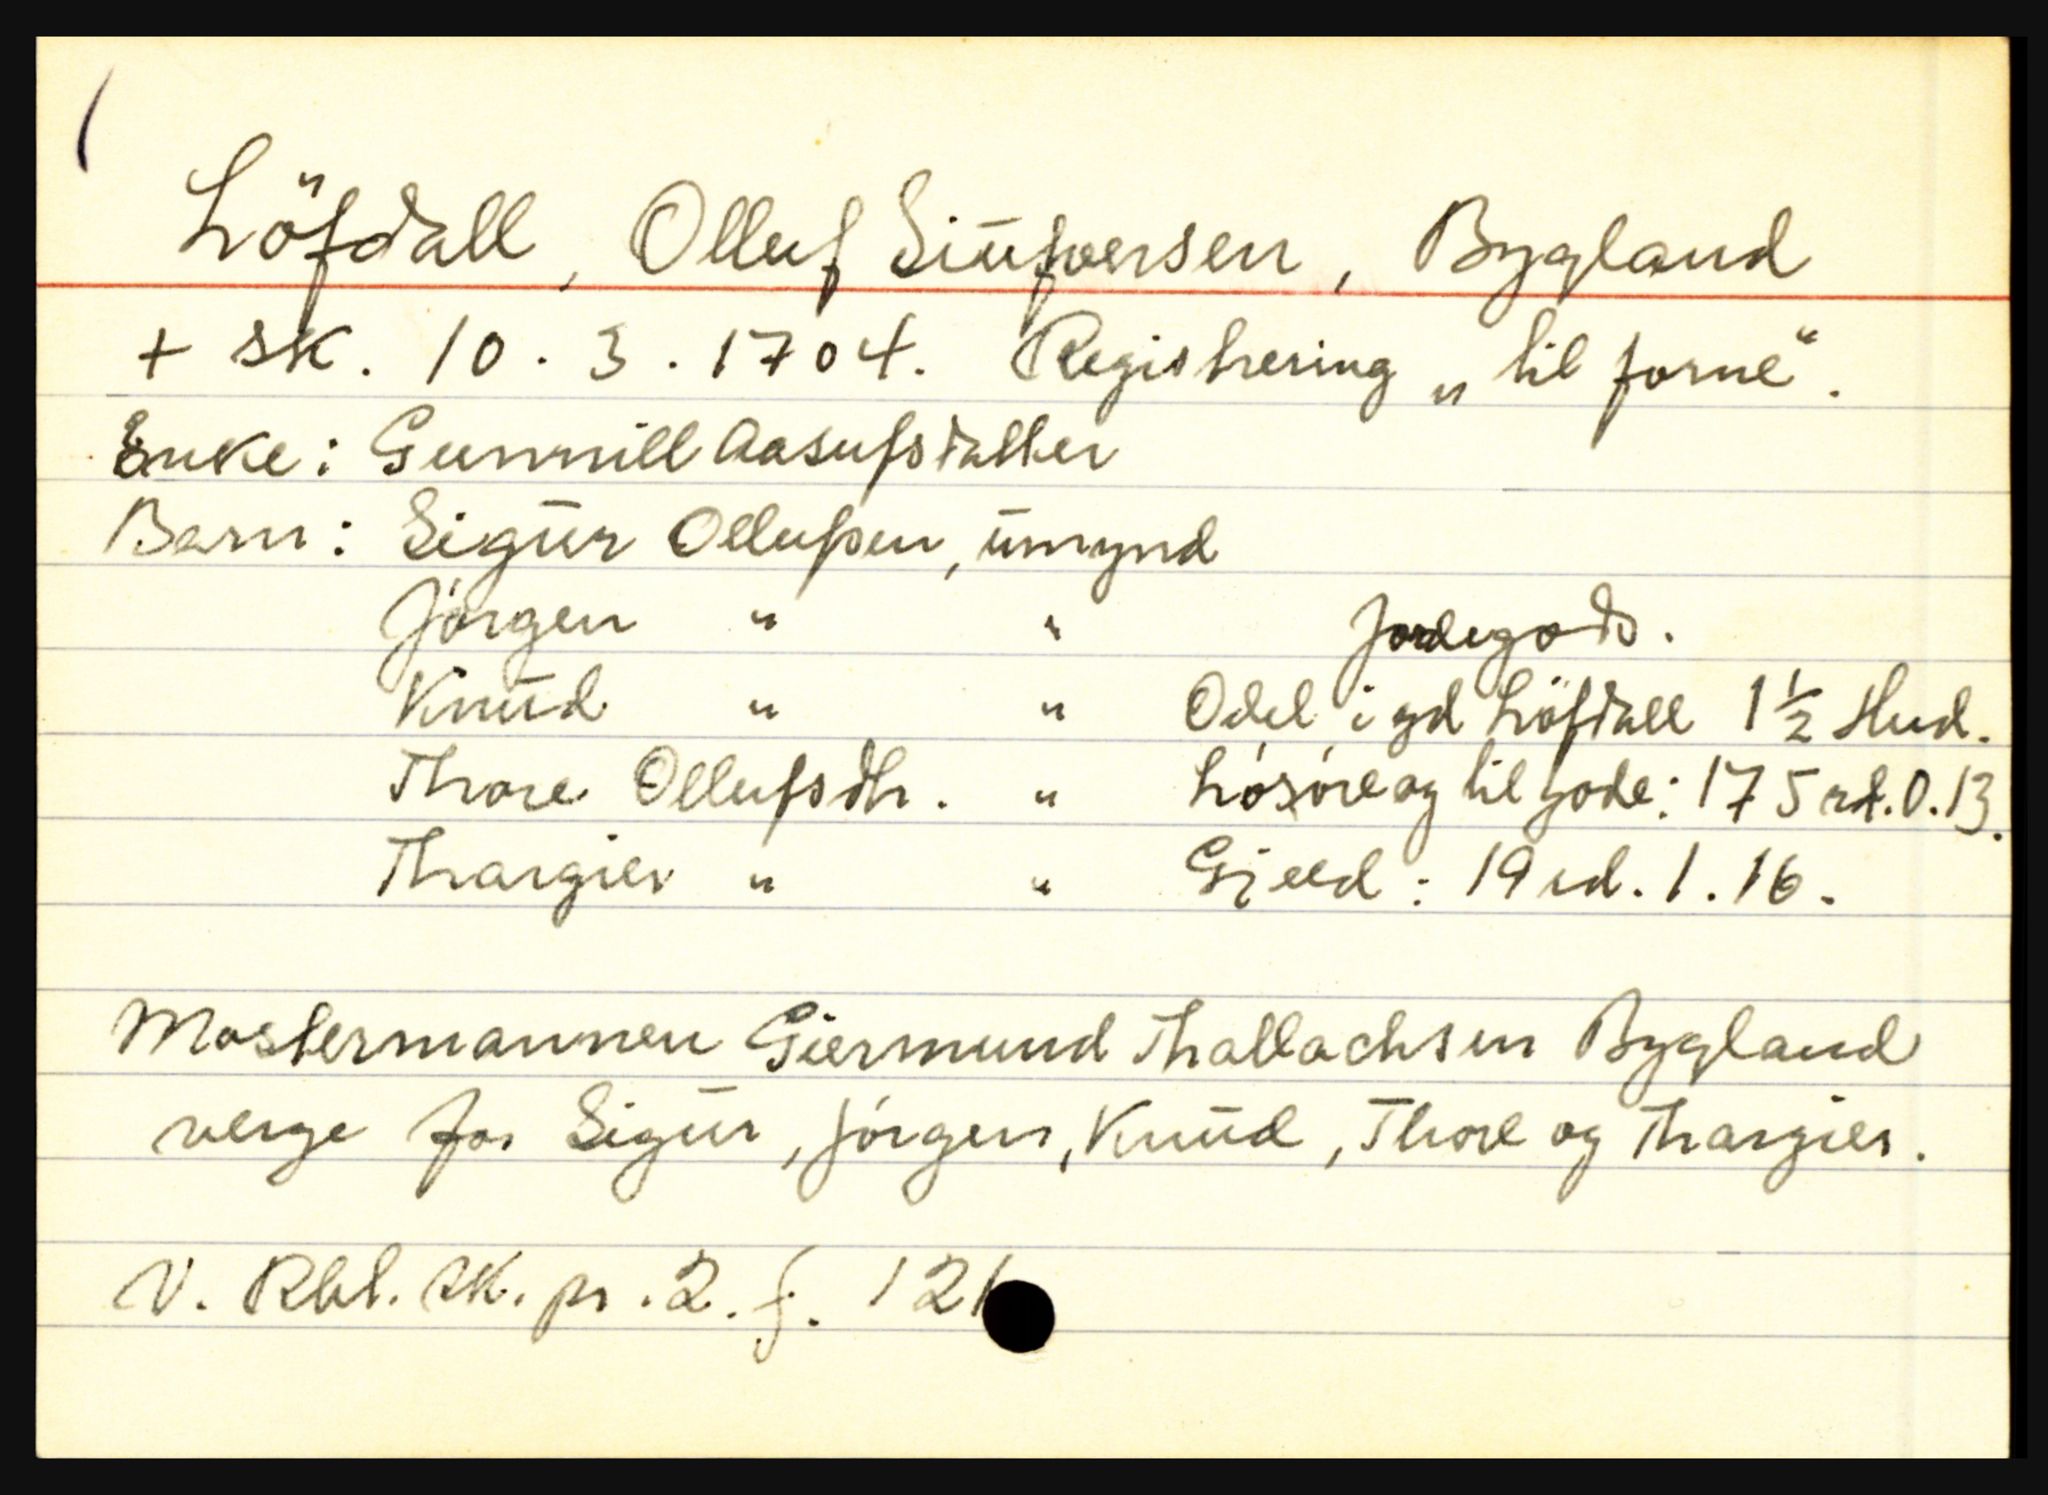 Löfdall, Olluf Siufversen, Bygland
+ sk. 10. 3. 1704. Registrering „til forne“.
Enke: Gunnill Aasufsdatter
Barn: Sigūr Ollufsen, ūmynd
Jörgen " " Jordegods.
Knūd " " Odel i gd Löfdall 1½ Hud.
Thore Ollufsdtr. " Lösöre og til gode: 175 rd. 0. 13.
Thargier " " Gjeld: 19 rd. 1. 16.
Mostermannen Giermund Thallachsen Bygland
verge for Sigūr, Jörgen, Knūd, Thore og Thargier.
V. Rbl. sk. pr. 2. f. 121